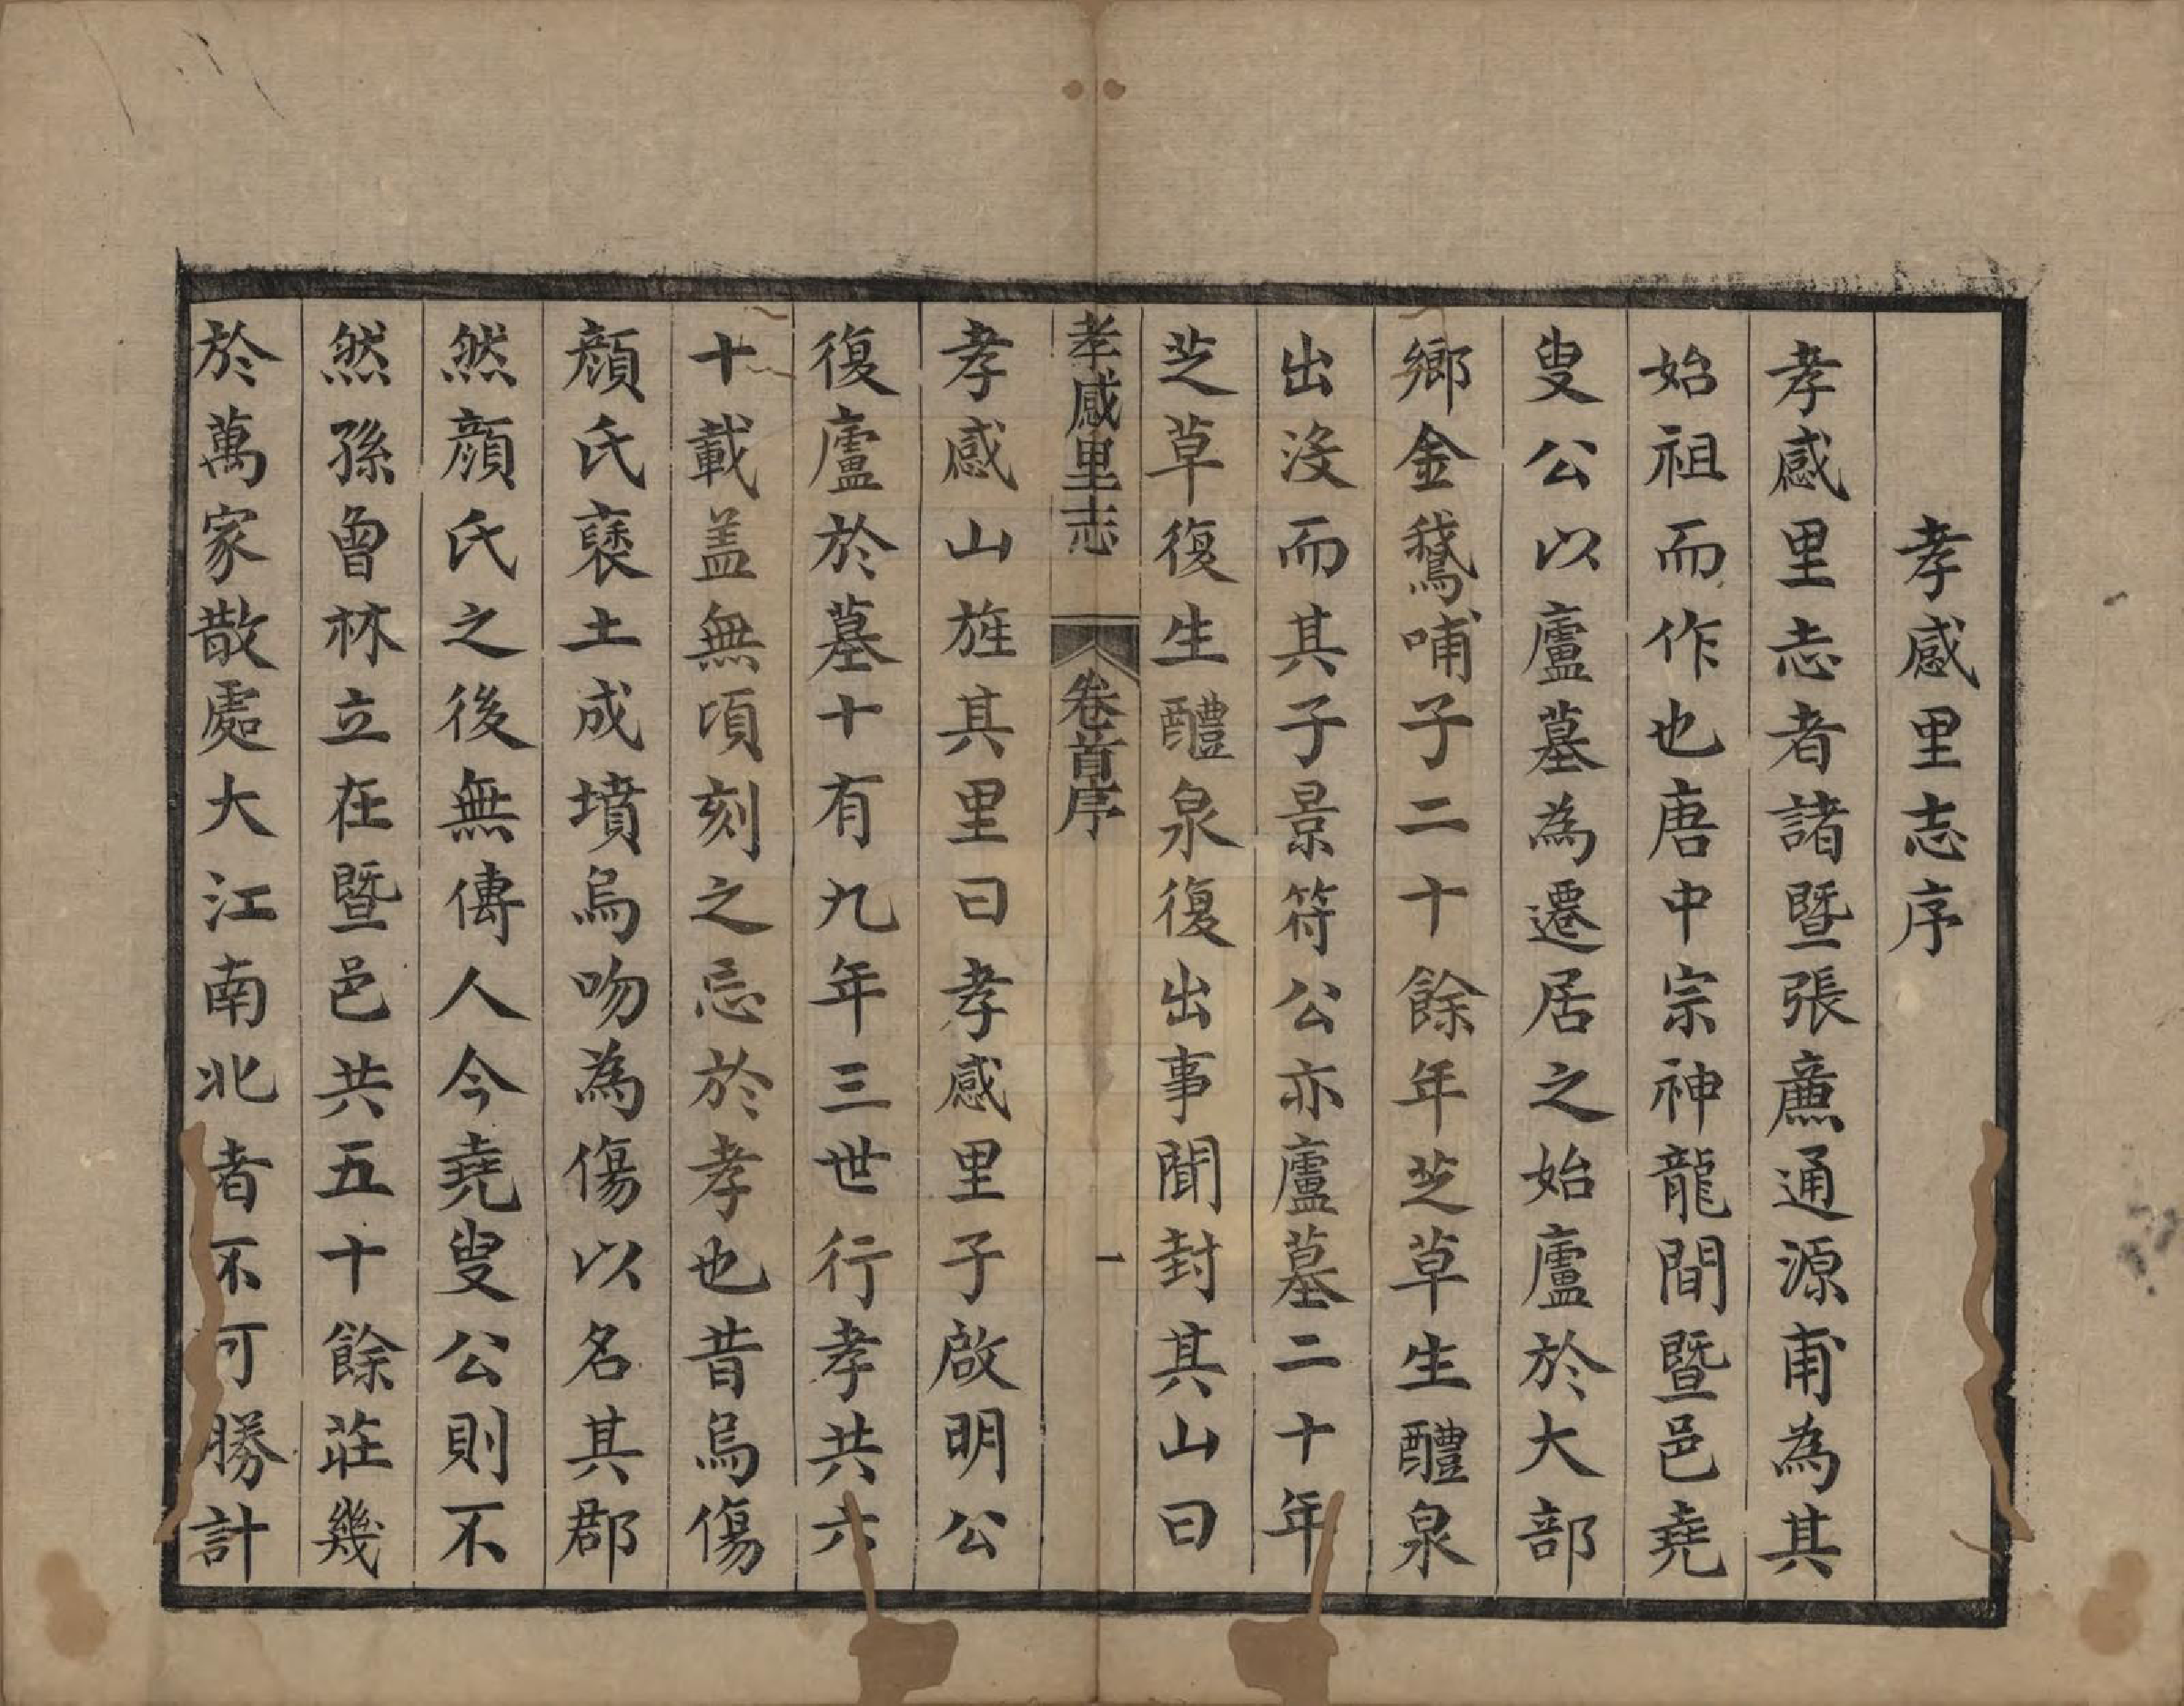 孝感里志序
孝感里志者諸暨張㢘通源甫為其
始祖而作也唐中宗神龍間暨邑堯
叟公以廬墓為遷居之始廬於大部
鄉金鵞哺子二十餘年芝草生醴泉
出沒而其子景符公亦廬墓二十年
芝草復生醴泉復出事聞封其山曰
孝感里志
卷首序
一
孝感山旌其里曰孝感里子啟明公
復廬於墓十有九年三世行孝共六
十載盖無頃刻之忘於孝也昔烏傷
顏氏褒土成墳烏吻為傷以名其郡
然顏氏之後無傳人今堯叟公則不
然孫曾林立在暨邑共五十餘莊幾
於萬家散處大江南北者不可勝計